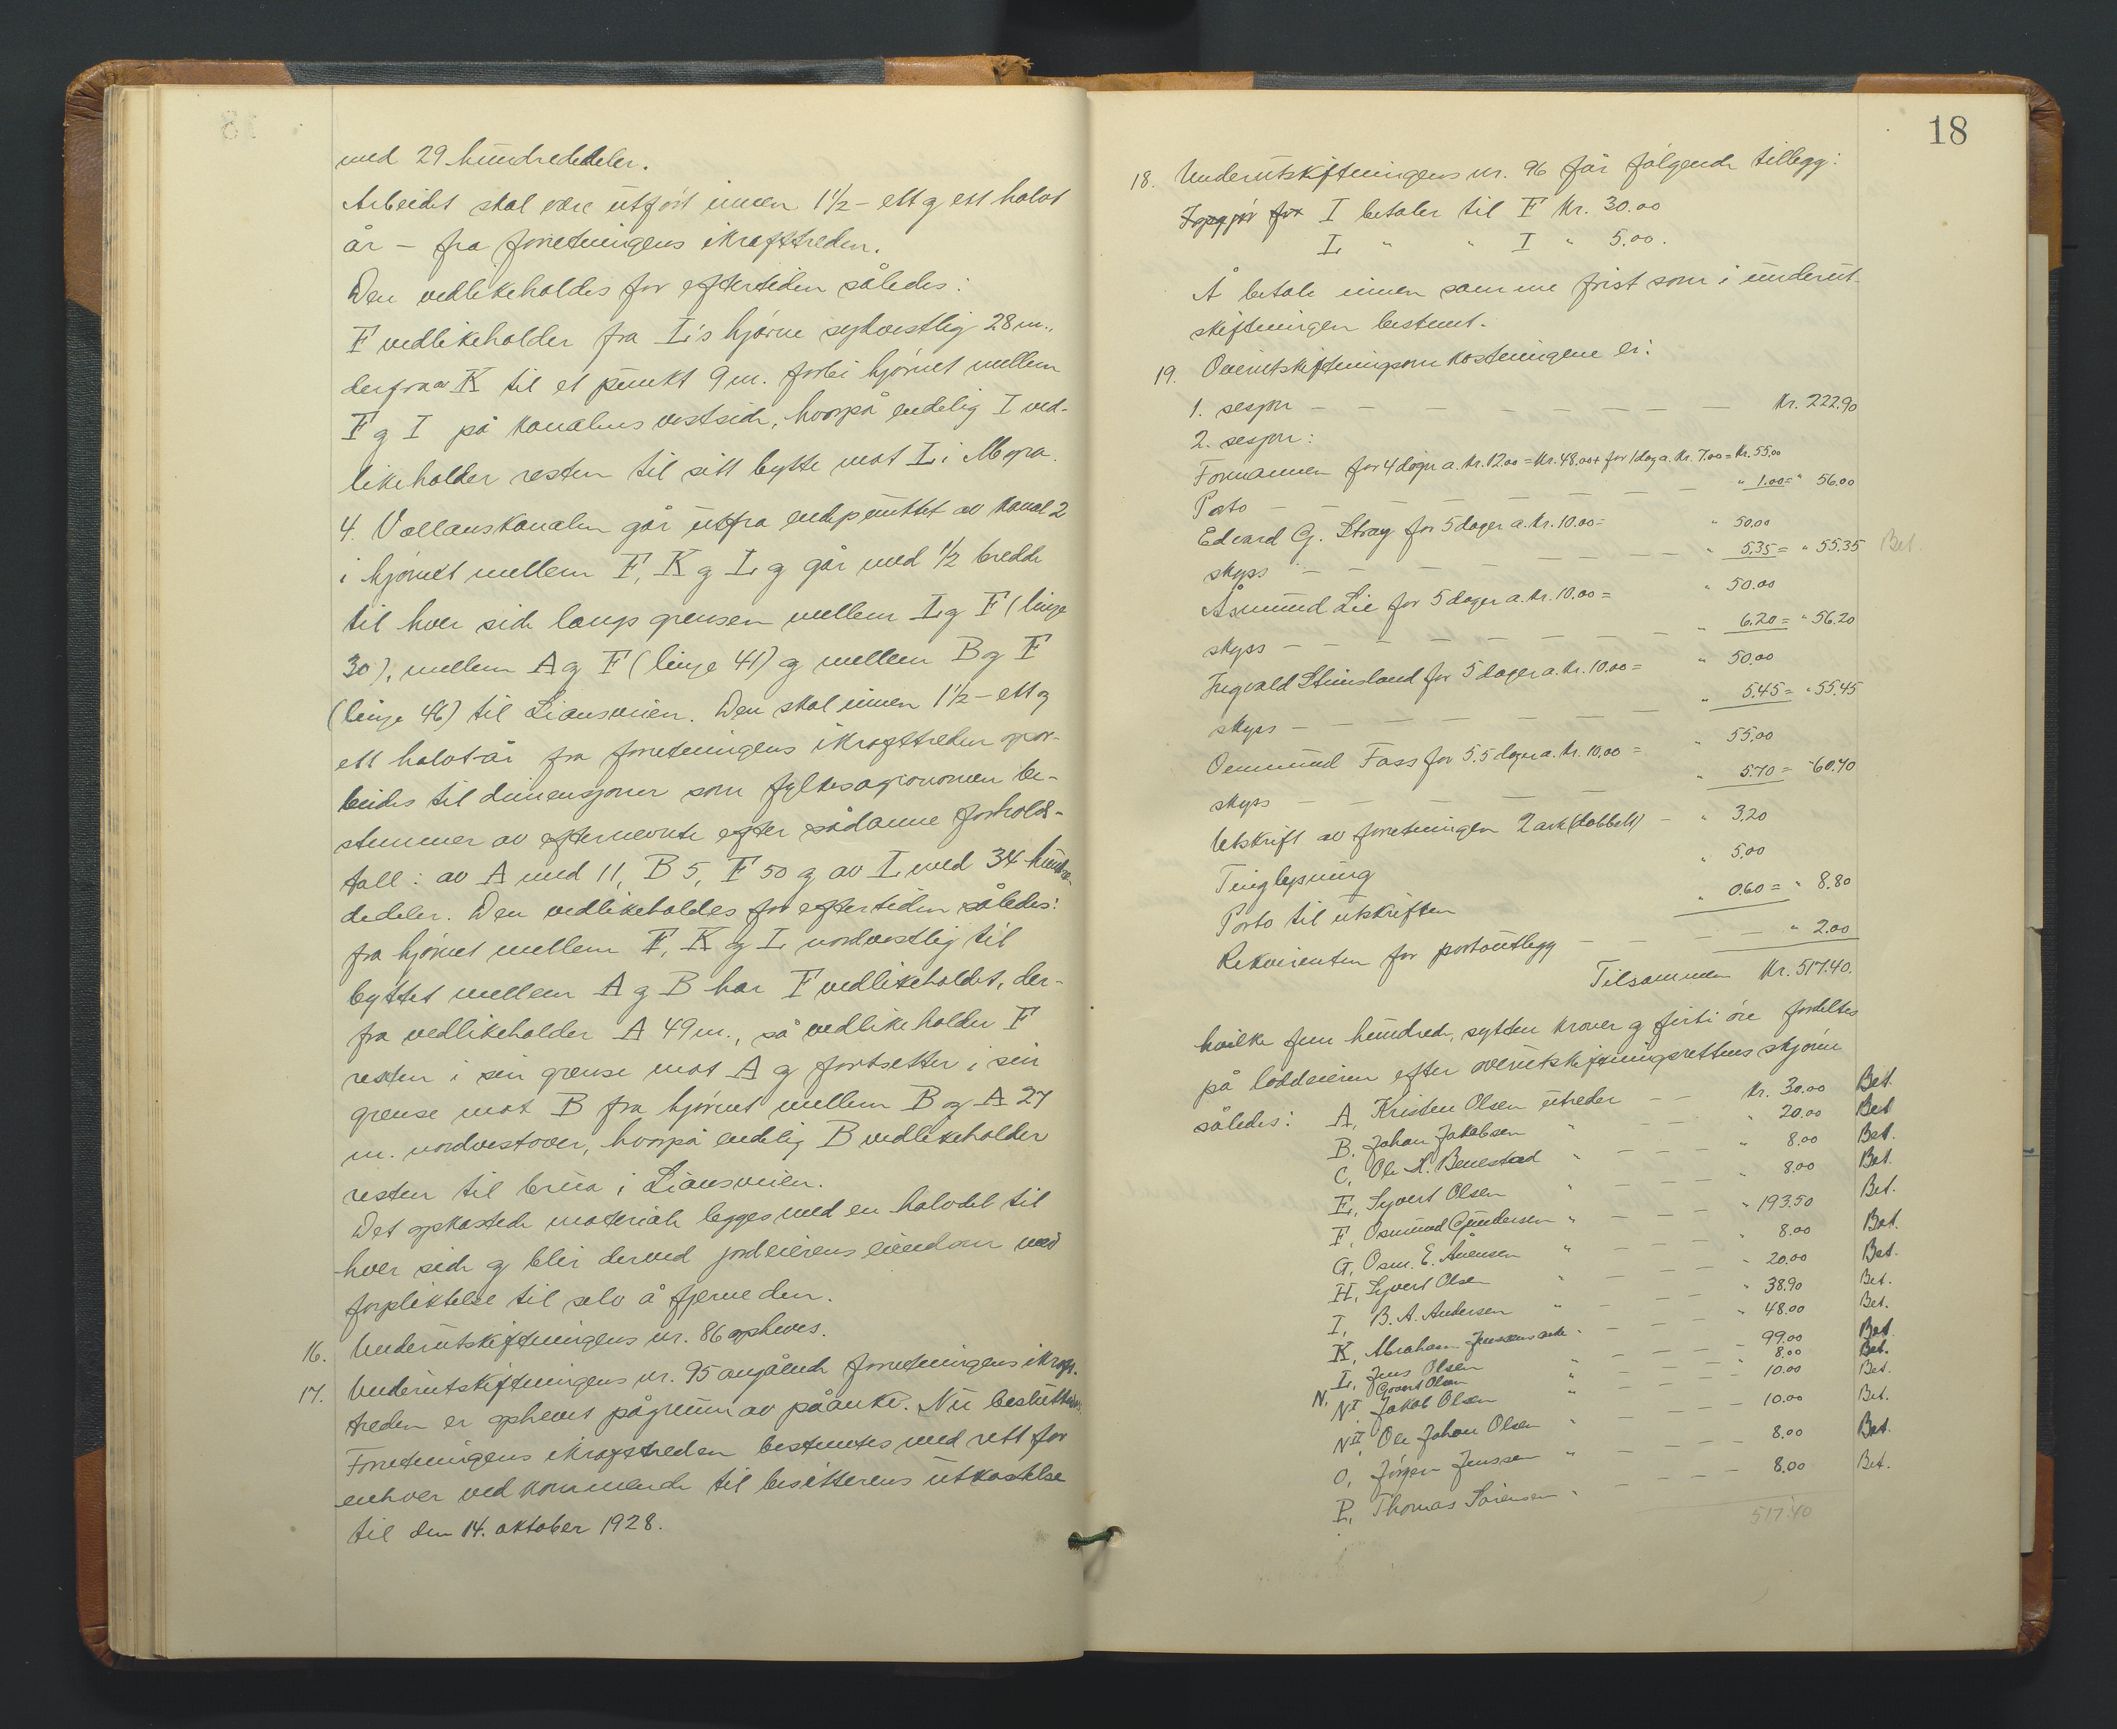 med 29 hundrededeler.
Arbeidet skal være utført innen 1 1/2 - ett og ett halvt
år - fra forretningens ikrafttreden.
Den vedlikeholdes for eftertiden således:
F vedlikeholder fra L's hjørne sydvestlig 28 m.,
derfra K til et punkt 9 m. forbi hjørnet mellem
F og I på kanalens vestside, hvorpå endelig I ved-
likeholder resten til sitt bytte mot L i Mopra.
4. Vollanskanalen går utfra endepunktet av kanal 2
i hjørnet mellem F, K og L og går med 1/2 bredde
til hver side langs grensen mellem L og F (linje
30), mellem A og F (linje 41) og mellem B og F
(linje 46) til Liansveien. Den skal innen 1 1/2 - ett og
ett halvt år fra forretningens ikrafttreden opar-
beides til dimensjoner som fylkesagronomen be-
stemmer av efternevnte efter sådanne forholds-
tall: av A med 11, B 5, F 50 og av L med 34 hundre-
dedeler. Den vedlikeholdes for eftertiden således:
fra hjørnet mellem F, K og L nordvestlig til
byttet mellem A og B har F vedlikeholdet, der-
fra vedlikeholder A 49 m., så vedlikeholder F
resten i sin grense mot A og fortsetter i sin
grense mot B fra hjørnet mellem B og A 27
m. nordvestover, hvorpå endelig B vedlikeholder
resten til brua i Liansveien.
Det opkastede materiale legges med en halvdel til
hver side og blir derved jordeierens eiendom med
forpliktelse til selv å fjerne den.
16. Underutskiftningens nr. 86 opheves.
17. Underutskiftningens nr. 95 angående forretningens ikraft-
treden er ophevet på grunn av påanke. Nu besluttes:
Forretningens ikrafttreden bestemtes med rett for
enhver vedkommende til besitterens utkastelse
til den 14. oktober 1928.
18
18. Underutskiftningens nr. 96 får følgende tillegg:
I betaler til F Kr. 30.00
L " " I " 5.00.
Å betale innen samme frist som i underut-
skiftningen bestemt.
19. Overutskiftningsomkostningene er:
1. sesjon - - - - - - - - Kr. 222.90
2. sesjon:
Formannen for 4 døgn a. Kr. 12.00 = Kr. 48.00 + for 1 dag a. Kr. 7.00 = Kr. 55.00
Porto - - - - - - - " 1.00 = " 56.00
Edvard G. Stray for 5 dager a. Kr. 10.00 = " 50.00
skyss - - - - - - - " 5.35 = " 55.35 Bet.
Åsmund Lie for 5 dager a. Kr. 10.00 = " 50.00
skyss - - - - - - - " 6.20 = " 56.20
Ingvald Stensland for 5 dager a. Kr. 10.00 = " 50.00
skyss - - - - - - - " 5.45 = " 55.45
Oemund Foss for 5.5 dager a. Kr. 10.00 = " 55.00
skyss - - - - - - " 5.70 = " 60.70
Utskrift av forretningen 2 ark (dobbelt) - " 3.20
Tinglysning " 5.00
Porto til utskriften " 0.60 = " 8.80
Rekvirenten for portoutlegg - - - - " 2.00
Tilsammen Kr. 517.40.
hvilke fem hundrede, sytten kroner og førti øre fordeltes
på loddeieren efter overutskiftningsrettens skjønn
således: A, Kristen Olsen utreder - - Kr. 30.00 Bet.
B, Johan Jakobsen " - - - " 20.00 Bet
C, Ole K. Benestad " - - - " 8.00 Bet.
E, Syvert Olsen " - - - " 8.00 Bet.
F, Osmund Gundersen " - - - " 193.50 Bet.
G, Osm. E. Ånensen " - - - " 8.00 Bet.
H, Syvert Olsen " - - - " 20.00 Bet.
I, B. A. Andersen " - - - " 38.90 Bet.
K, Abraham Jenssens " - - - " 48.00 Bet.
L, Jens Olsen " - - - 99.00 Bet.
N, Govert Olsen " - - - 8.00 Bet.
N I, Jakob Olsen " - - - 10.00 Bet.
N II, Ole Johan Olsen " - - - 10.00 Bet.
O, Jørgen Jenssen " - - - 8.00 Bet.
P, Thomas Sørensen " - - - 8.00 Bet.
517.40